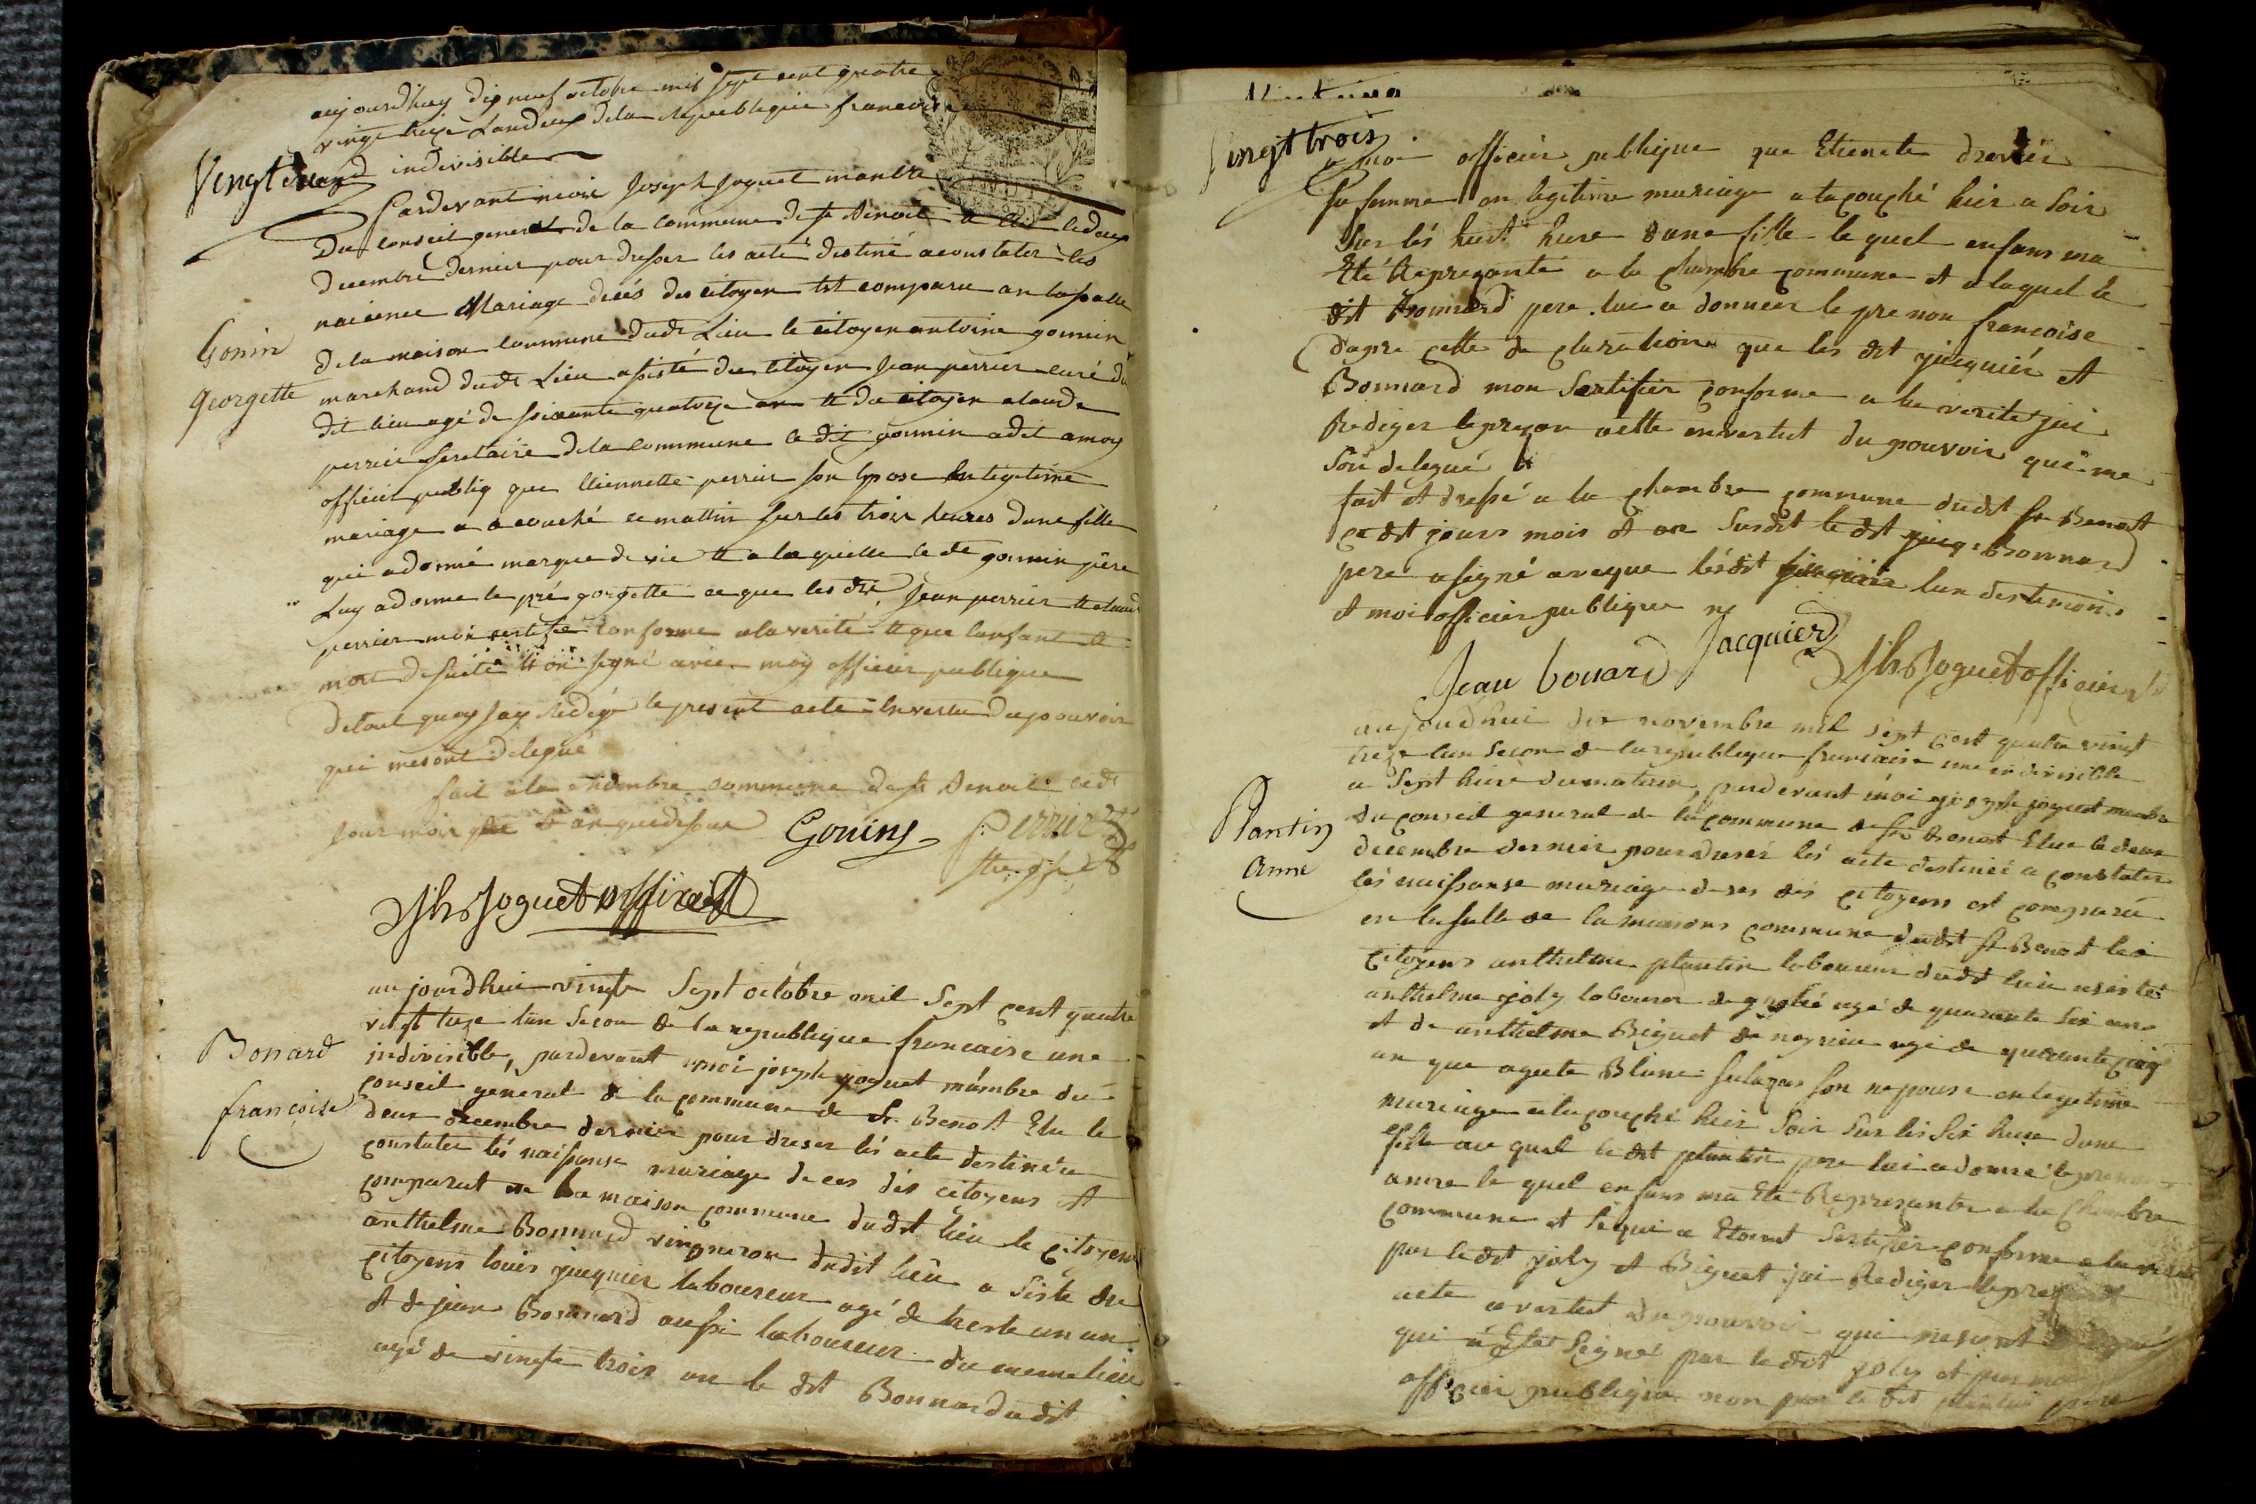 aujourdhuy dix neuf octobre mil sept cent quatre
vingt treize Landeux dela republique francoise
Vingtdeux
indivisible
Pardevant moi Joseph Joguet manbre
Du conseil general de la commune de st Benoit le deux
decembre dernier pour dresser les acte destiné aconstater les
naicence Mariage décés des citoyen est comparu an la salle
Gonin
Georgette
de la maison commune dudt Lieu le citoyen antoine gounin
marchand dudt Lieu assisté du citoyen Jean perrier curé du
dit lieu agé de soixante quatorze an et du citoyen claude
perrier secretaire de la commune le dit gounin adit amoy
officier publiq que Etiennette perrier son Epose En legitime
mariage a acouché ce mattin sur les trois heures dune fille
qui adonné marque de vie et a laquelle le dt gounin père
Luy adonné le pré gorgette ce que les dt Jean perrier et claude
perrier mon certifie conforme ala verité et que lanfant et
mort desuite et on signé avec moy officier publique
detout quoy jay redigé le present acte En vertu du pouvoir
qui mesont délegué
fait ala chambre commune de st Benoit ce dt
jour mois et an que desus
Gonins Perrier
Jph Joguet officier
aujourdhui vingte Sept octobre mil Sept cent quatre
vingt treze lan Secon de la republique francaise une
Bonard
françoise
indivisible, pardevant moi joseph joguet mambre du
conseil géneral de la commune de St. Benoit Elu le
deux decembre dernier pour dreser les acte destinéa
constater lés naissanse mariage deces dés citoyens et
comparut en la maison commune dudit lieu le citoyen
anthelme Bonnard vingneron dudit lieu a siste du
citoyens louis jucquier laboureur agé de trente un an
et de jean Bonnard aussi laboureur du meme lieu
agé de vingte trois an le dit Bonnard a dit
Vingt trois
a moi officier publique que Etienete drevier
sa famme an legitime mariage a tacouché hier a soir
sur lés huit hure dune fille le quel enfans ma
Eté Represanté a la chambre commune et a laquel le
dit Bonnard pere lui a donneer le prenon francoise
dapre cette declaration que les dit jucquier et
Bonnard mon Sertifier conforme a la verite jai
Rediger le presan acte anvertut du pouvoir qui me
son delegué
fait et dressé a la chambre commune dudit st Benoit
ce dit jours mois et an susdit le dit Bonnard
pere a signé aveque lésdit lun des temoin
et moi officier publique
Jean bonard Jacquier Jph Joguet officier
aujourdhui dix novembre mil sept cent quatre vingt
treze lan secon de la republique francaise une indivisible
a sept hure du matin, pardevant moi joseph joguet membre
Plantin
Anne
du conseil general de la commune de st Benoit Elue le deux
decembre dernier pour dresér lés acte destinéé a constater
lés naissanse mariage deses dés citoyens est comparu
en la salle de la maisons commune dudit st Benoit le
citoyens anthelme plantin laboureur dudit lieu asisté
anthelme joly laboureur de agé de quarante six ans
et de anthelme Biguet de agé de quarante cinq
an que agate Blanc son nepouse en legitime
mariage a tacouché hier soir sur lis six hure dune
fille au quel le dit plantin pere lui adonné le prenon
anne le quel enfans ma Eté Represante a la chambre
commune et se qui a Etoint Sertifier conforme a la verite
par ledit joly et Biguet jai Rediger le present
acte a vertut du pouvoir qui mesont
qui a Eté Signé par le dit joly et par moi
officier publique non par le dit plantin pere